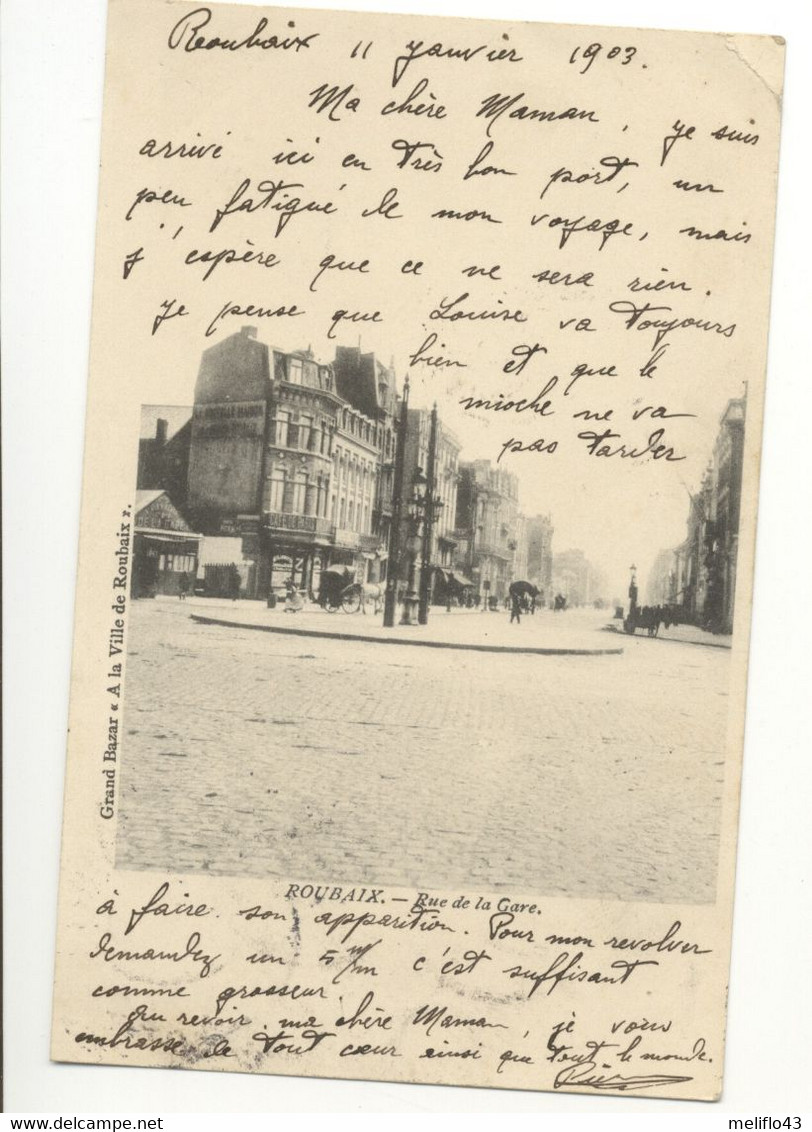 Roubaix 11 janvier 1903.
Ma chère Maman, je suis
arrivé ici en très bon port, un
peu fatigué de mon voyage, mais
j'espère que ce ne sera rien.
Je pense que Louise va toujours
bien et que le
mioche ne va
pas tarder
Grand Bazar « A la Ville de Roubaix r.
ROUBAIX. — Rue de la Gare.
à faire son apparition. Pour mon revolver
demandez un 5 m/m c'est suffisant
comme grosseur.
Au revoir, ma chère Maman, je vous
embrasse de tout cœur ainsi que tout le monde.
meliflo43